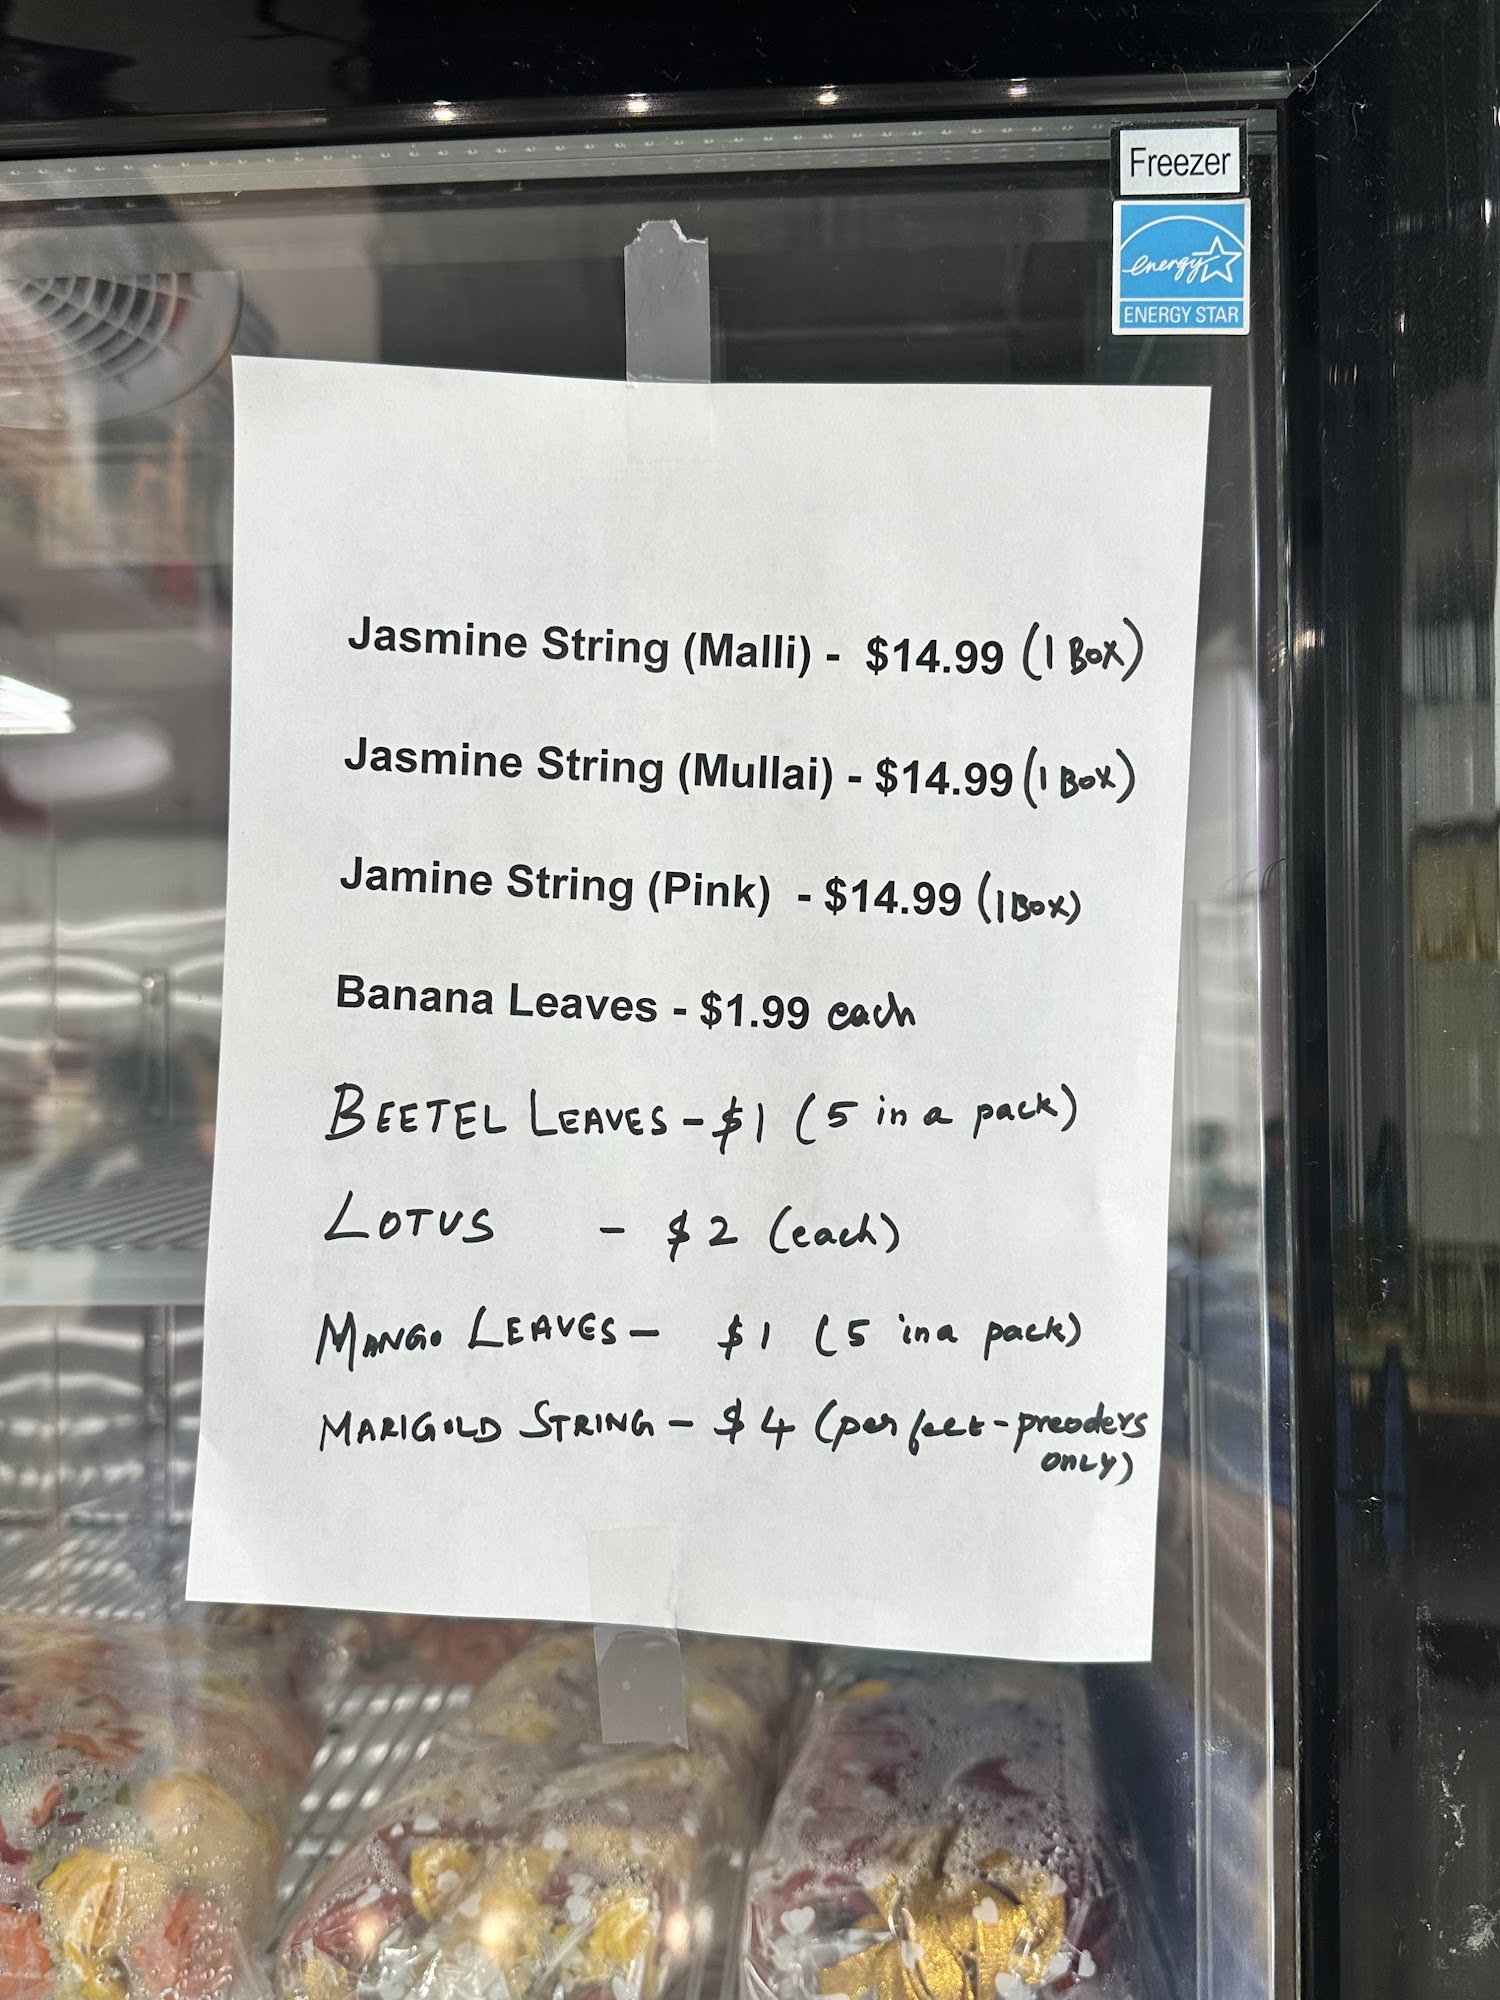 Freezer
energy
ENERGY STAR
Jasmine String (Malli) - $14.99 (1 BOX)
Jasmine String (Mullai) - $14.99 (1 BOX)
Jamine String (Pink) - $14.99 (1 BOX)
Banana Leaves - $1.99 each
BEETEL LEAVES - $1 (5 in a pack)
LOTUS - $2 (each)
MANGO LEAVES - $1 (5 in a pack)
MARIGOLD STRING - $4 (per feet - preoders
ONLY)